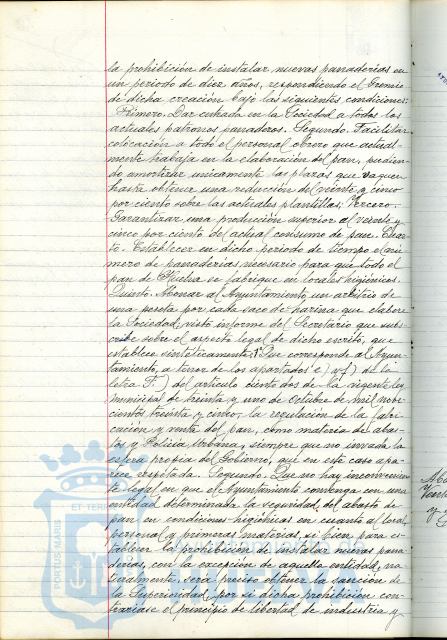 la prohibición de instalar nuevas panaderías en
un periodo de diez años, respondiendo el Gremio
de dicha creación bajo las siguientes condiciones:
Primero. Dar entrada en la Sociedad a todos los
actuales patronos panaderos. Segundo. Facilitar
colocación a todo el personal obrero que actual-
mente trabaja en la elaboración del pan, pudien-
do amortizar unicamente las plazas que vaquen
hasta obtener una reducción del veinte y cinco
por ciento sobre las actuales plantillas. Tercero.
Garantizar una producción superior al veinte y
cinco por ciento del actual consumo de pan. Cuar-
to. Establecer en dicho periodo de tiempo el nú-
mero de panaderías necesario para que todo el
pan de Huelva se fabrique en locales higiénicos.
Quinto. Abonar al Ayuntamiento un arbitrio de
una peseta por cada saco de harina que elabore
la Sociedad; visto informe del Secretario que sus-
cribe sobre el aspecto legal de dicho escrito, que
establece sinteticamente: 1º Que corresponde al Ayun-
tamiento, a tenor de los apartados e) y f) de la
letra F.) del artículo ciento dos de la vigente ley
municipal de treinta y uno de Octubre de mil nove-
cientos treinta y cinco, la regulación de la fabri-
cación y venta del pan, como materia de abas-
tos y Policia Urbana, siempre que no invada la
esfera propia del Gobierno, que en este caso apa-
rece respetada. Segundo. Que no hay inconvenien-
te legal en que el Ayuntamiento convenga con una
entidad determinada la seguridad del abasto de
pan en condiciones higiénicas en cuanto al local,
personal y primeras materias, si bien para es-
tablecer la prohibición de instalar nuevas pana-
derías, con la excepción de aquella entidad, na-
turalmente, será preciso obtener la sanción de
la Superioridad, por si dicha prohibición con-
trariase el principio de libertad de industria y
PORTUS MARIS
ET TER